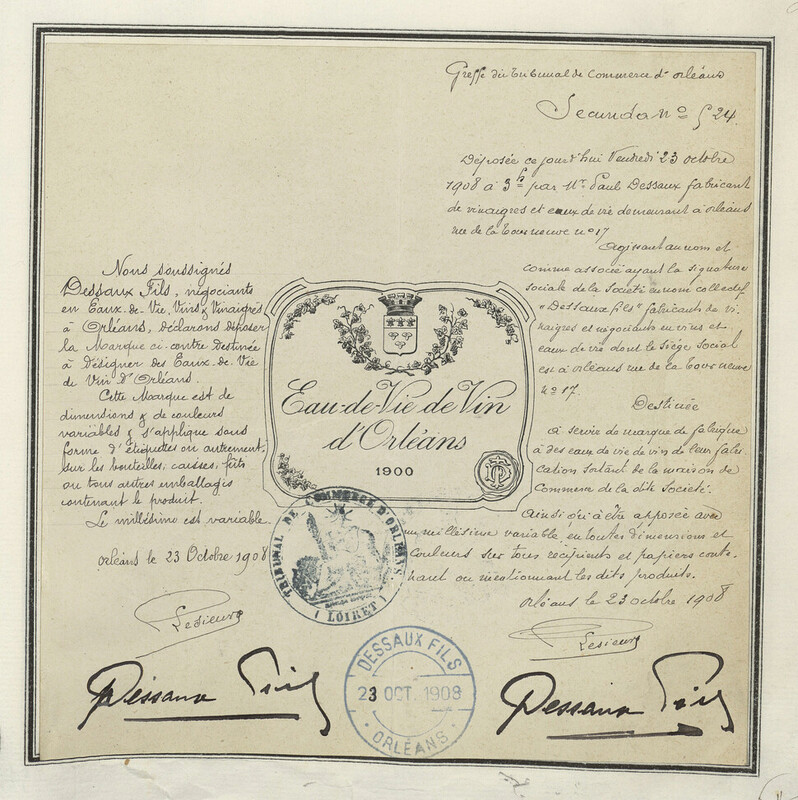 Greffe du Tribunal de Commerce d'Orléans
Secundo No 524.
Déposée ce jourd'hui Vendredi 23 octobre
1908 à 3h par Mr Paul Dessaux fabricant
de vinaigres et eaux de vie demeurant à orléans
rue de la Tour neuve no 17
Agissant au nom et
comme associé ayant la signature
sociale de la Société en nom collectif
"Dessaux fils" fabricants de vi-
naigres et négociants en vins et
eaux de vie dont le Siège Social
est à orléans rue de la Tour neuve
no 17.
Destinée
à servir de marque de fabrique
à des eaux de vie de vin de leur fabri
cation sortant de la maison de
Commerce de la dite Société.
Ainsi qu'à être apposée avec
un millésime variable, en toutes dimensions et
Couleurs sur tous récipients et papiers conte-
nant ou mentionnant les dits produits.
Orléans le 23 octobre 1908
Lesieur
Dessaux Fils
Nous soussignés
Dessaux Fils, négociants
en Eaux-de-Vie, Vins & Vinaigres
à Orléans, déclarons déposer
la Marque ci-contre Destinée
à Désigner des Eaux-de-Vie
de Vin d'Orléans.
Cette Marque est de
dimensions & de couleurs
variables & s'applique sous
forme d'étiquettes ou autrement,
sur les bouteilles, caisses, fûts
ou tous autres emballages
contenant le produit.
Le millésime est variable.
Orléans le 23 Octobre 1908
Lesieur
Dessaux Fils
Eau-de-Vie de Vin
d'Orléans
1900
TRIBUNAL DE COMMERCE D'ORLÉANS.
(LOIRET)
DESSAUX FILS
23 OCT. 1908
ORLÉANS